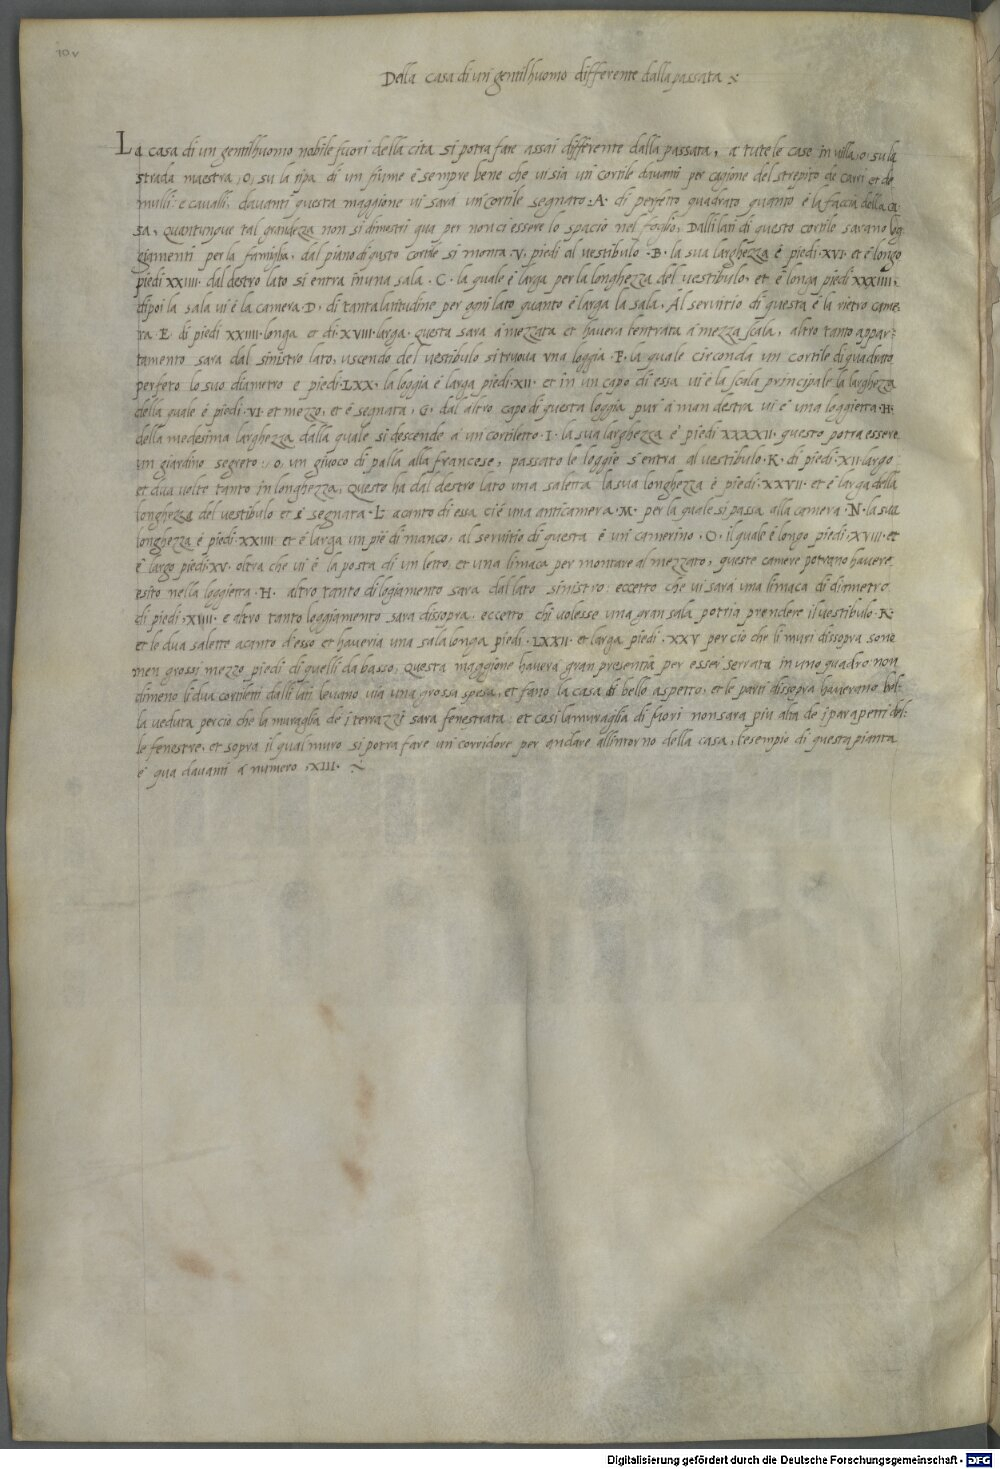 10v
Della casa di un gentilhuomo differente dalla passata
La casa di un gentilhuomo nobile fuori della cita si potra fare assai differente dalla passata, a tute le case in villa, o, su la
strada maestra, o, su la ripa di un fiume è sempre bene che vi sia un cortile davanti per cagione del strepito de carri et de
mulli e cavalli, davanti questa maggione vi sara un cortile segnato .A. di perfetto quadrato quanto è la faccia della ca-
sa, quantunque tal grandezza non si dimostri qua per non ci essere lo spacio nel foglio, Dalli lati di questo cortile sarano log-
giamenti per la famiglia, dal piano di questo cortile si monta .V. piedi al vestibulo .B. la sua larghezza è piedi .XVI. et è longo
piedi XXIIII. dal destro lato si entra in una sala .C. la quale è larga per la longhezza del vestibulo, et è longa piedi XXXIIII.
dipoi la sala vi è la camera .D. di tanta latitudine per ogni lato quanto è larga la sala. Al servitio di questa è la rietro came-
ra .E. di piedi XXIIII longa et di .XVIII. larga, questa sara amezzata et havera l'entrata a mezza scala, altro tanto appar-
tamento sara dal sinistro lato, uscendo del vestibulo si truova una loggia .F. la quale circonda un cortile di quadrato
perfeto lo suo diametro e piedi .LXX. la loggia è larga piedi .XII. et in un capo di essa vi è la scala principale la larghezza
della quale è piedi .VI. et mezzo, et è segnata, G. dal altro capo di questa loggia pur a man destra vi è una loggietta .H.
della medesima larghezza, dalla quale si descende a un cortiletto .I. la sua larghezza è piedi XXXXII. questo potra essere
un giardino segreto, o, un giuoco di palla alla francese, passato le loggie s'entra al vestibulo .K. di piedi .XII. largo
et dua volte tanto in longhezza, Questo ha dal destro lato una saletta la sua longhezza è piedi .XXVII. et è larga della
longhezza del vestibulo et è segnata .L. acanto di essa ci è una anticamera .M. per la quale si passa alla camera .N. la sua
longhezza è piedi .XXIIII. et è larga un pie di manco, al servitio di questa è un camerino .O. il quale è longo piedi .XVIII. et
è largo piedi .XV. oltra che vi è la posta di un letto, et una limaca per montare al mezzato, queste camere potrano havere
esito nella loggietta .H. altro tanto di logiamento sara dal lato sinistro eccetto che vi sara una limaca di diametro
di piedi .XIIII. e altro tanto loggiamento sara dissopra, eccetto chi volesse una gran sala potria prendere il vestibulo .K.
et le dua salette acanto d'esso et haveria una sala longa piedi .LXXII. et larga piedi .XXV per cio che li muri dissopra sono
men grossi mezzo piedi di quelli da basso, Questa maggione havera gran presentia per esser serrata in uno quadro non
dimeno li dua cortiletti dalli lati levano via una grossa spesa, et fano la casa di bello aspetto, et le parti dissopra haverano bel-
la veduta percio che la muraglia de i terrazzi sara fenestrata et cosi la muraglia di fuori non sara piu alta de i parapetti del-
le fenestre, et sopra il qual muro si potra fare un corridore per andare all'intorno della casa, l'esempio di questa pianta
e' qua davanti a numero .XIII.
Digitalisierung gefördert durch die Deutsche Forschungsgemeinschaft - DFG